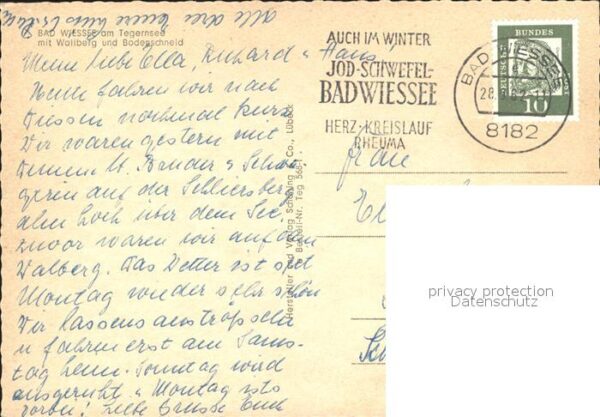 alle drei
BAD WIESSEE am Tegernsee
mit Wallberg und Bodenschneid
Meine liebe Ella, Richard u Hans
Heute fahren wir nach
Füssen nochmal kurz
Wir waren gestern mit
Deinem Bruder u Schwä
gerin auf der Schliersberg
alm hoch über dem See
zuvor waren wir auf dem
Walberg. Das Wetter ist seit
Montag wieder sehr schön
Wir lassens
u fahren erst am Sams-
tag heim. Sonntag wird
ausgeruht u Montag ists
vorbei! Liebe Grüsse Euch
Hersteller und Verlag Schöning & Co., Lübeck
Bestell-Nr. Teg 565
AUCH IM WINTER
JOD-SCHWEFEL-
BAD WIESSEE
HERZ-KREISLAUF
RHEUMA
BAD WIESSEE
8182
DEUTSCHE BUNDESPOST
10
Frau
privacy protection
Datenschutz